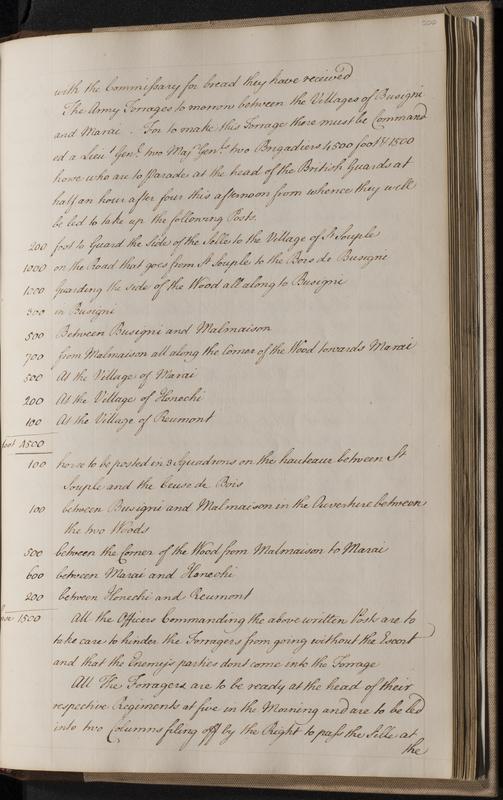 with the Commissary for bread they have received
The Army Forrages to morrow between the Villages of Busigni
and Marai . For to make this Forrage there must be Command
ed a Lieut Genl two Maj Genls two Brigadiers 4500 foot & 1500
horse who are to Parade at the head of the British Guards at
half an hour after four this afternoon from whence they will
be led to take up the following Posts.
200 foot to Guard the side of the Selle to the Village of St Souple
1000 on the Road that goes from St Souple to the Bois de Busigni
1000 Guarding the side of the Wood all along to Busigni
300 in Busigni
500 Between Busigni and Malmaison
700 from Malmaison all along the Corner of the Wood towards Marai
500 At the Village of Marai
200 At the Village of Honechi
100 At the Village of Reumont
foot 4500
100 horse to be posted in 3 Squadrons on the hauteaur between St
Souple and the Ceuse de Bois
100 between Busigni and Malmaison in the Ouverture between
the two Woods
500 between the Corner of the Wood from Malmaison to Marai
600 between Marai and Honechi
200 between Honechi and Reumont
1500 All the Officers Commanding the above written Posts are to
take care to hinder the Forragers from going without the Escort
and that the Enemys parties dont come into the Forrage
All The Forragers are to be ready at the head of their
respective Regiments at five in the Morning and are to be led
into two Columns filing off by the Right to pass the Selle at
the